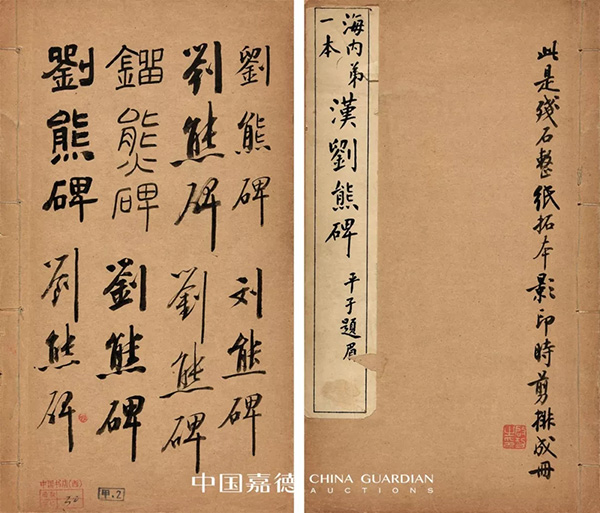 劉熊碑
劉熊碑
鎦熊碑
劉熊碑
刘熊碑
劉熊碑
劉熊碑
劉熊碑
中国书店(西)
甲.2
此是殘石整紙拓本影印時剪排成冊
海内弟
一本
漢劉熊碑
平子題眉
中国嘉德 CHINA GUARDIAN
AUCTIONS